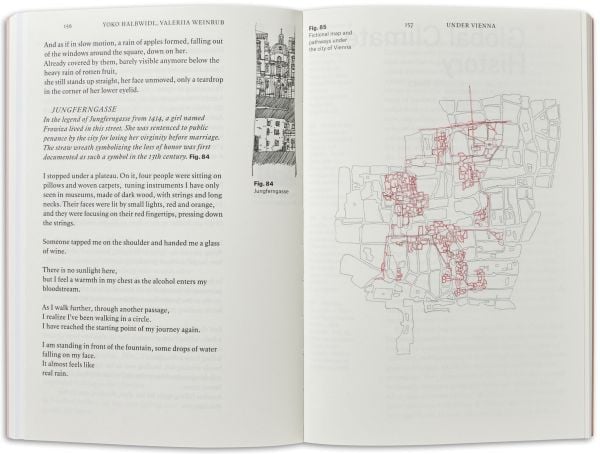 156 YOKO HALBWIDL, VALERIIA WEINRUB
And as if in slow motion, a rain of apples formed, falling out
of the windows around the square, down on her.
Already covered by them, barely visible anymore below the
heavy rain of rotten fruit,
she still stands up straight, her face unmoved, only a teardrop
in the corner of her lower eyelid.
JUNGFERNGASSE
In the legend of Jungferngasse from 1414, a girl named
Frowiza lived in this street. She was sentenced to public
penance by the city for losing her virginity before marriage.
The straw wreath symbolizing the loss of honor was first
documented as such a symbol in the 13th century. Fig. 84
I stopped under a plateau. On it, four people were sitting on
pillows and woven carpets, tuning instruments I have only
seen in museums, made of dark wood, with strings and long
necks. Their faces were lit by small lights, red and orange,
and they were focusing on their red fingertips, pressing down
the strings.
Someone tapped me on the shoulder and handed me a glass
of wine.
There is no sunlight here,
but I feel a warmth in my chest as the alcohol enters my
bloodstream.
As I walk further, through another passage,
I realize I've been walking in a circle.
I have reached the starting point of my journey again.
I am standing in front of the fountain, some drops of water
falling on my face.
It almost feels like
real rain.
Fig. 84
Jungferngasse
Fig. 85
Fictional map and
pathways under
the city of Vienna
157 UNDER VIENNA
Global Climate
History